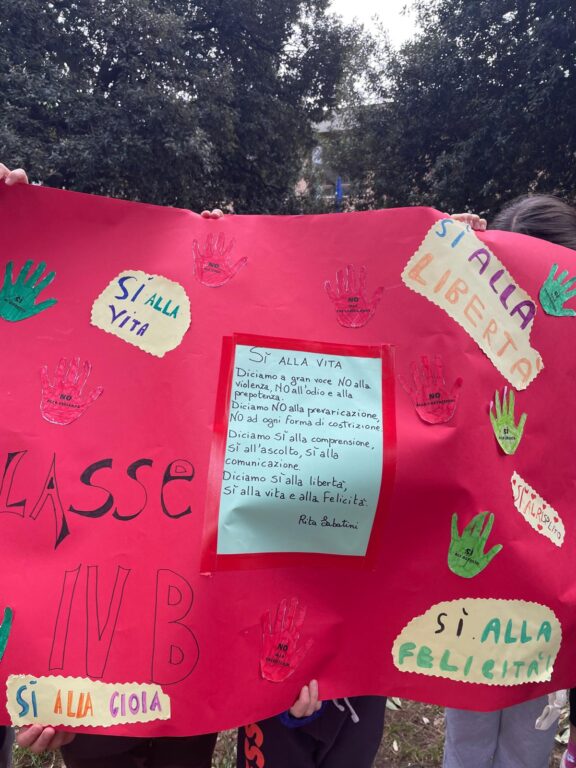 SÌ ALLA
LIBERTÀ
NO
SÌ
SÌ ALLA
VITA
NO
NO
NO
SÌ
SÌ ALLA VITA
Diciamo a gran voce NO alla
violenza, NO all'odio e alla
prepotenza.
Diciamo NO alla prevaricazione,
NO ad ogni forma di costrizione.
Diciamo SÌ alla comprensione,
SÌ all'ascolto, SÌ alla
comunicazione.
Diciamo SÌ alla libertà,
SÌ alla vita e alla Felicità.
Rita Sabatini
LASSE
IV B
SÌ AL RISPETTO
SÌ
NO
SÌ ALLA
FELICITÀ!
SÌ ALLA GIOIA